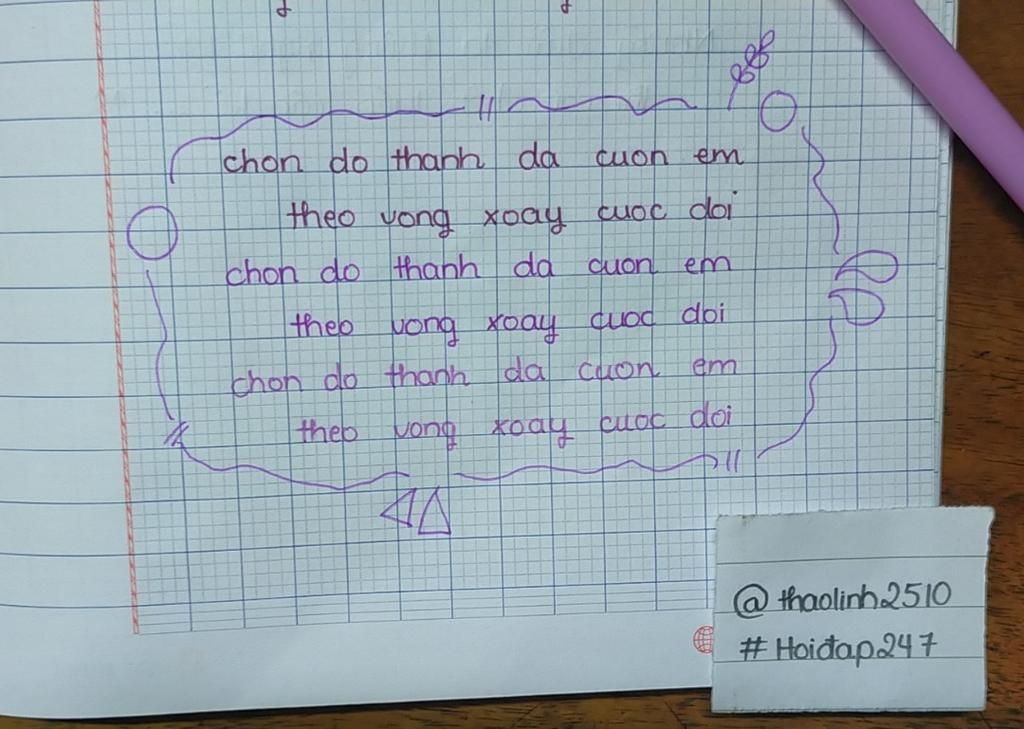 chon do thanh da cuon em
theo vong xoay cuoc doi
chon do thanh da cuon em
theo vong xoay cuoc doi
chon do thanh da cuon em
theo vong xoay cuoc doi
@thaolinh2510
#Hoidap247